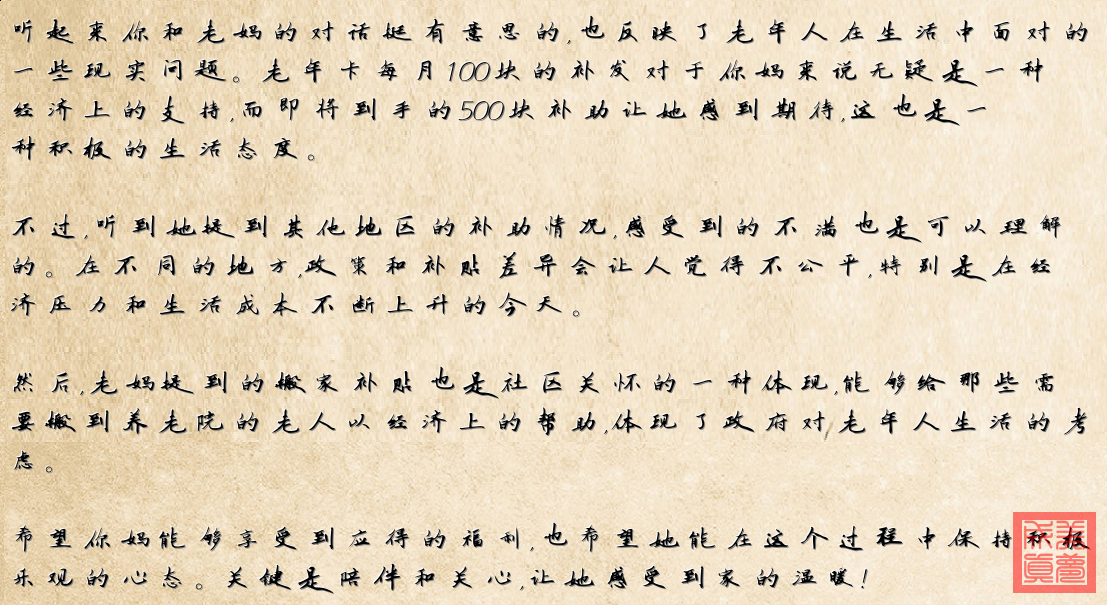 听起来你和老妈的对话挺有意思的,也反映了老年人在生活中面对的
一些现实问题。老年卡每月100块的补发对于你妈来说无疑是一种
经济上的支持,而即将到手的500块补助让她感到期待,这也是一
种积极的生活态度。
不过,听到她提到其他地区的补助情况,感受到的不满也是可以理解
的。在不同的地方,政策和补贴差异会让人觉得不公平,特别是在经
济压力和生活成本不断上升的今天。
然后,老妈提到的搬家补贴也是社区关怀的一种体现,能够给那些需
要搬到养老院的老人以经济上的帮助,体现了政府对老年人生活的考
虑。
希望你妈能够享受到应得的福利,也希望她能在这个过程中保持积极
乐观的心态。关键是陪伴和关心,让她感受到家的温暖!
美梦成真